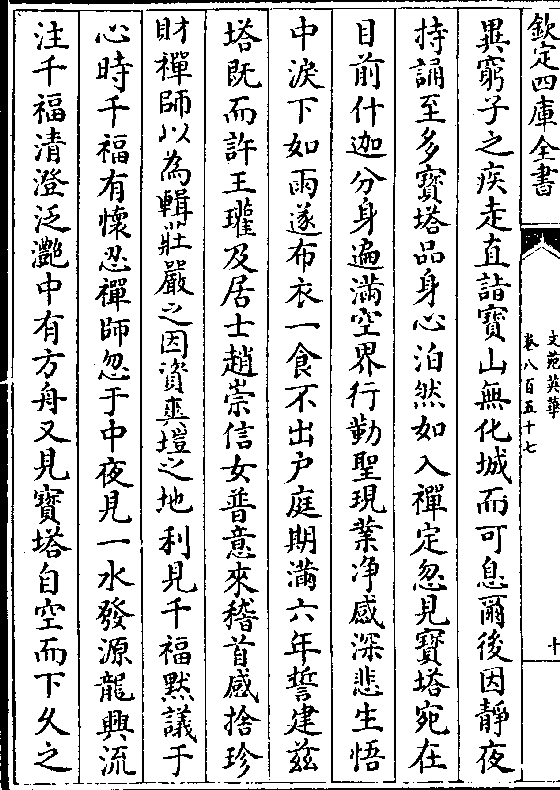 欽定四庫全書
文苑英華
卷八百五十七
十
異窮子之疾走直詣寶山無化城而可息爾後因靜夜
持誦至多寶塔品身心泊然如入禪定忽見寶塔宛在
目前什迦分身遍滿空界行勤聖現業净感深悲生悟
中淚下如雨遂布衣一食不出户庭期滿六年誓建兹
塔既而許王瓘及居士趙崇信女普意來稽首感捨珍
財禪師以為輯莊嚴之因資爽塏之地利見千福黙議于
心時千福有懷忍禪師忽于中夜見一水發源龍興流
注千福清澄泛灔中有方舟又見寶塔自空而下久之